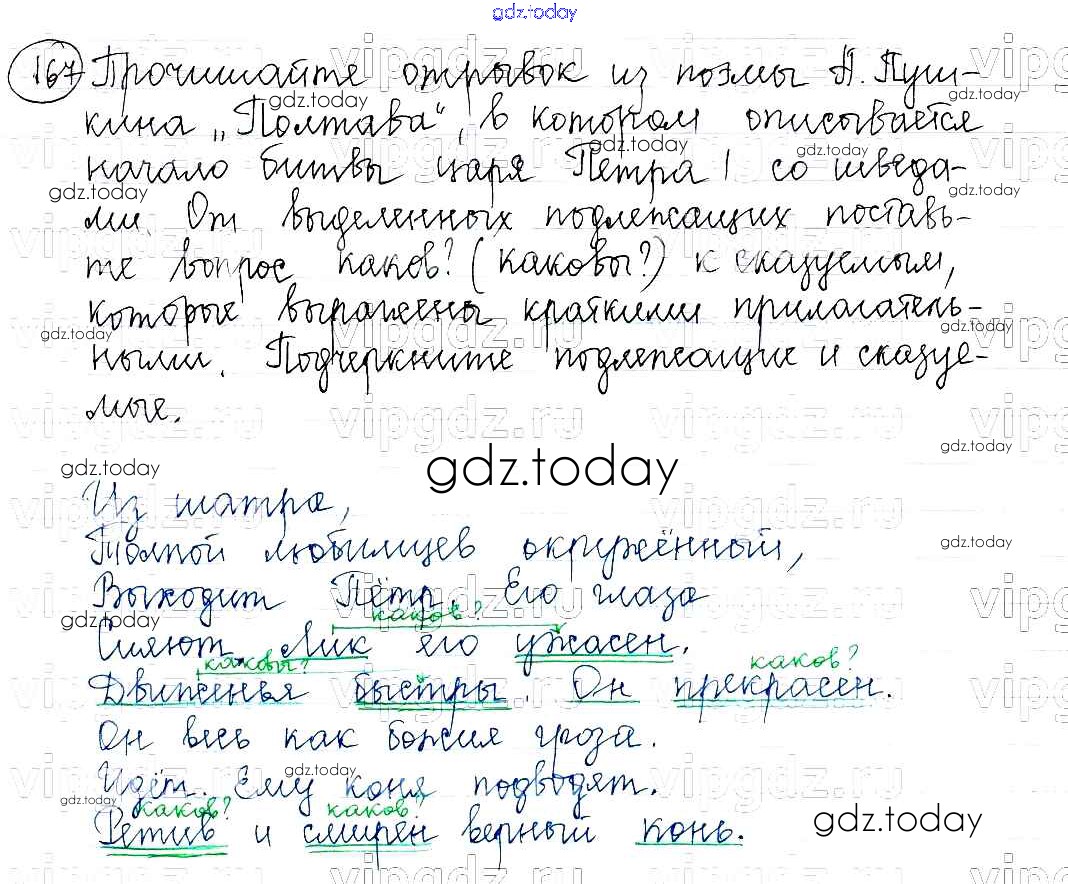 gdz.today
167 Прочитайте отрывок из поэмы А. Пуш-
кина „Полтава“, в котором описывается
начало битвы царя Петра I со шведа-
ми. От выделенных подлежащих поставь-
те вопрос каков? (каковы?) к сказуемым,
которые выражены краткими прилагатель-
ными. Подчеркните подлежащие и сказуе-
мые.
gdz.today
Из шатра,
Толпой любимцев окружённый,
Выходит Пётр. Его глаза
каков?
Сияют. Лик его ужасен.
каковы? каков?
Движенья быстры. Он прекрасен.
Он весь как божия гроза.
Идёт. Ему коня подводят.
каков? каков?
Ретив и смирен верный конь.
gdz.today